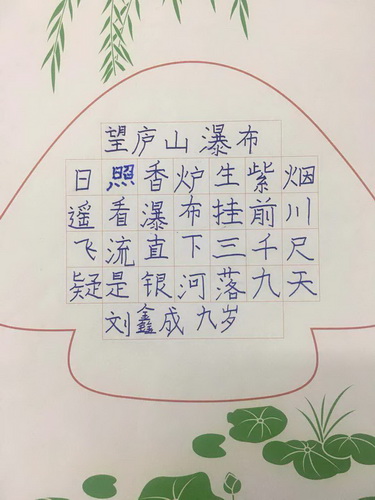 望庐山瀑布
日照香炉生紫烟
遥看瀑布挂前川
飞流直下三千尺
疑是银河落九天
刘鑫成 九岁